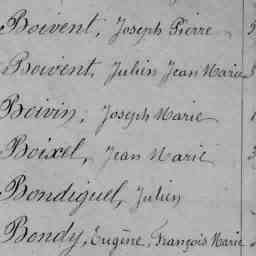 Boivent, Joseph Pierre
Boivent, Julien Jean Marie
Boivin, Joseph Marie
Boixel, Jean Marie
Bondiguel, Julien
Bondy, Eugène, François Marie